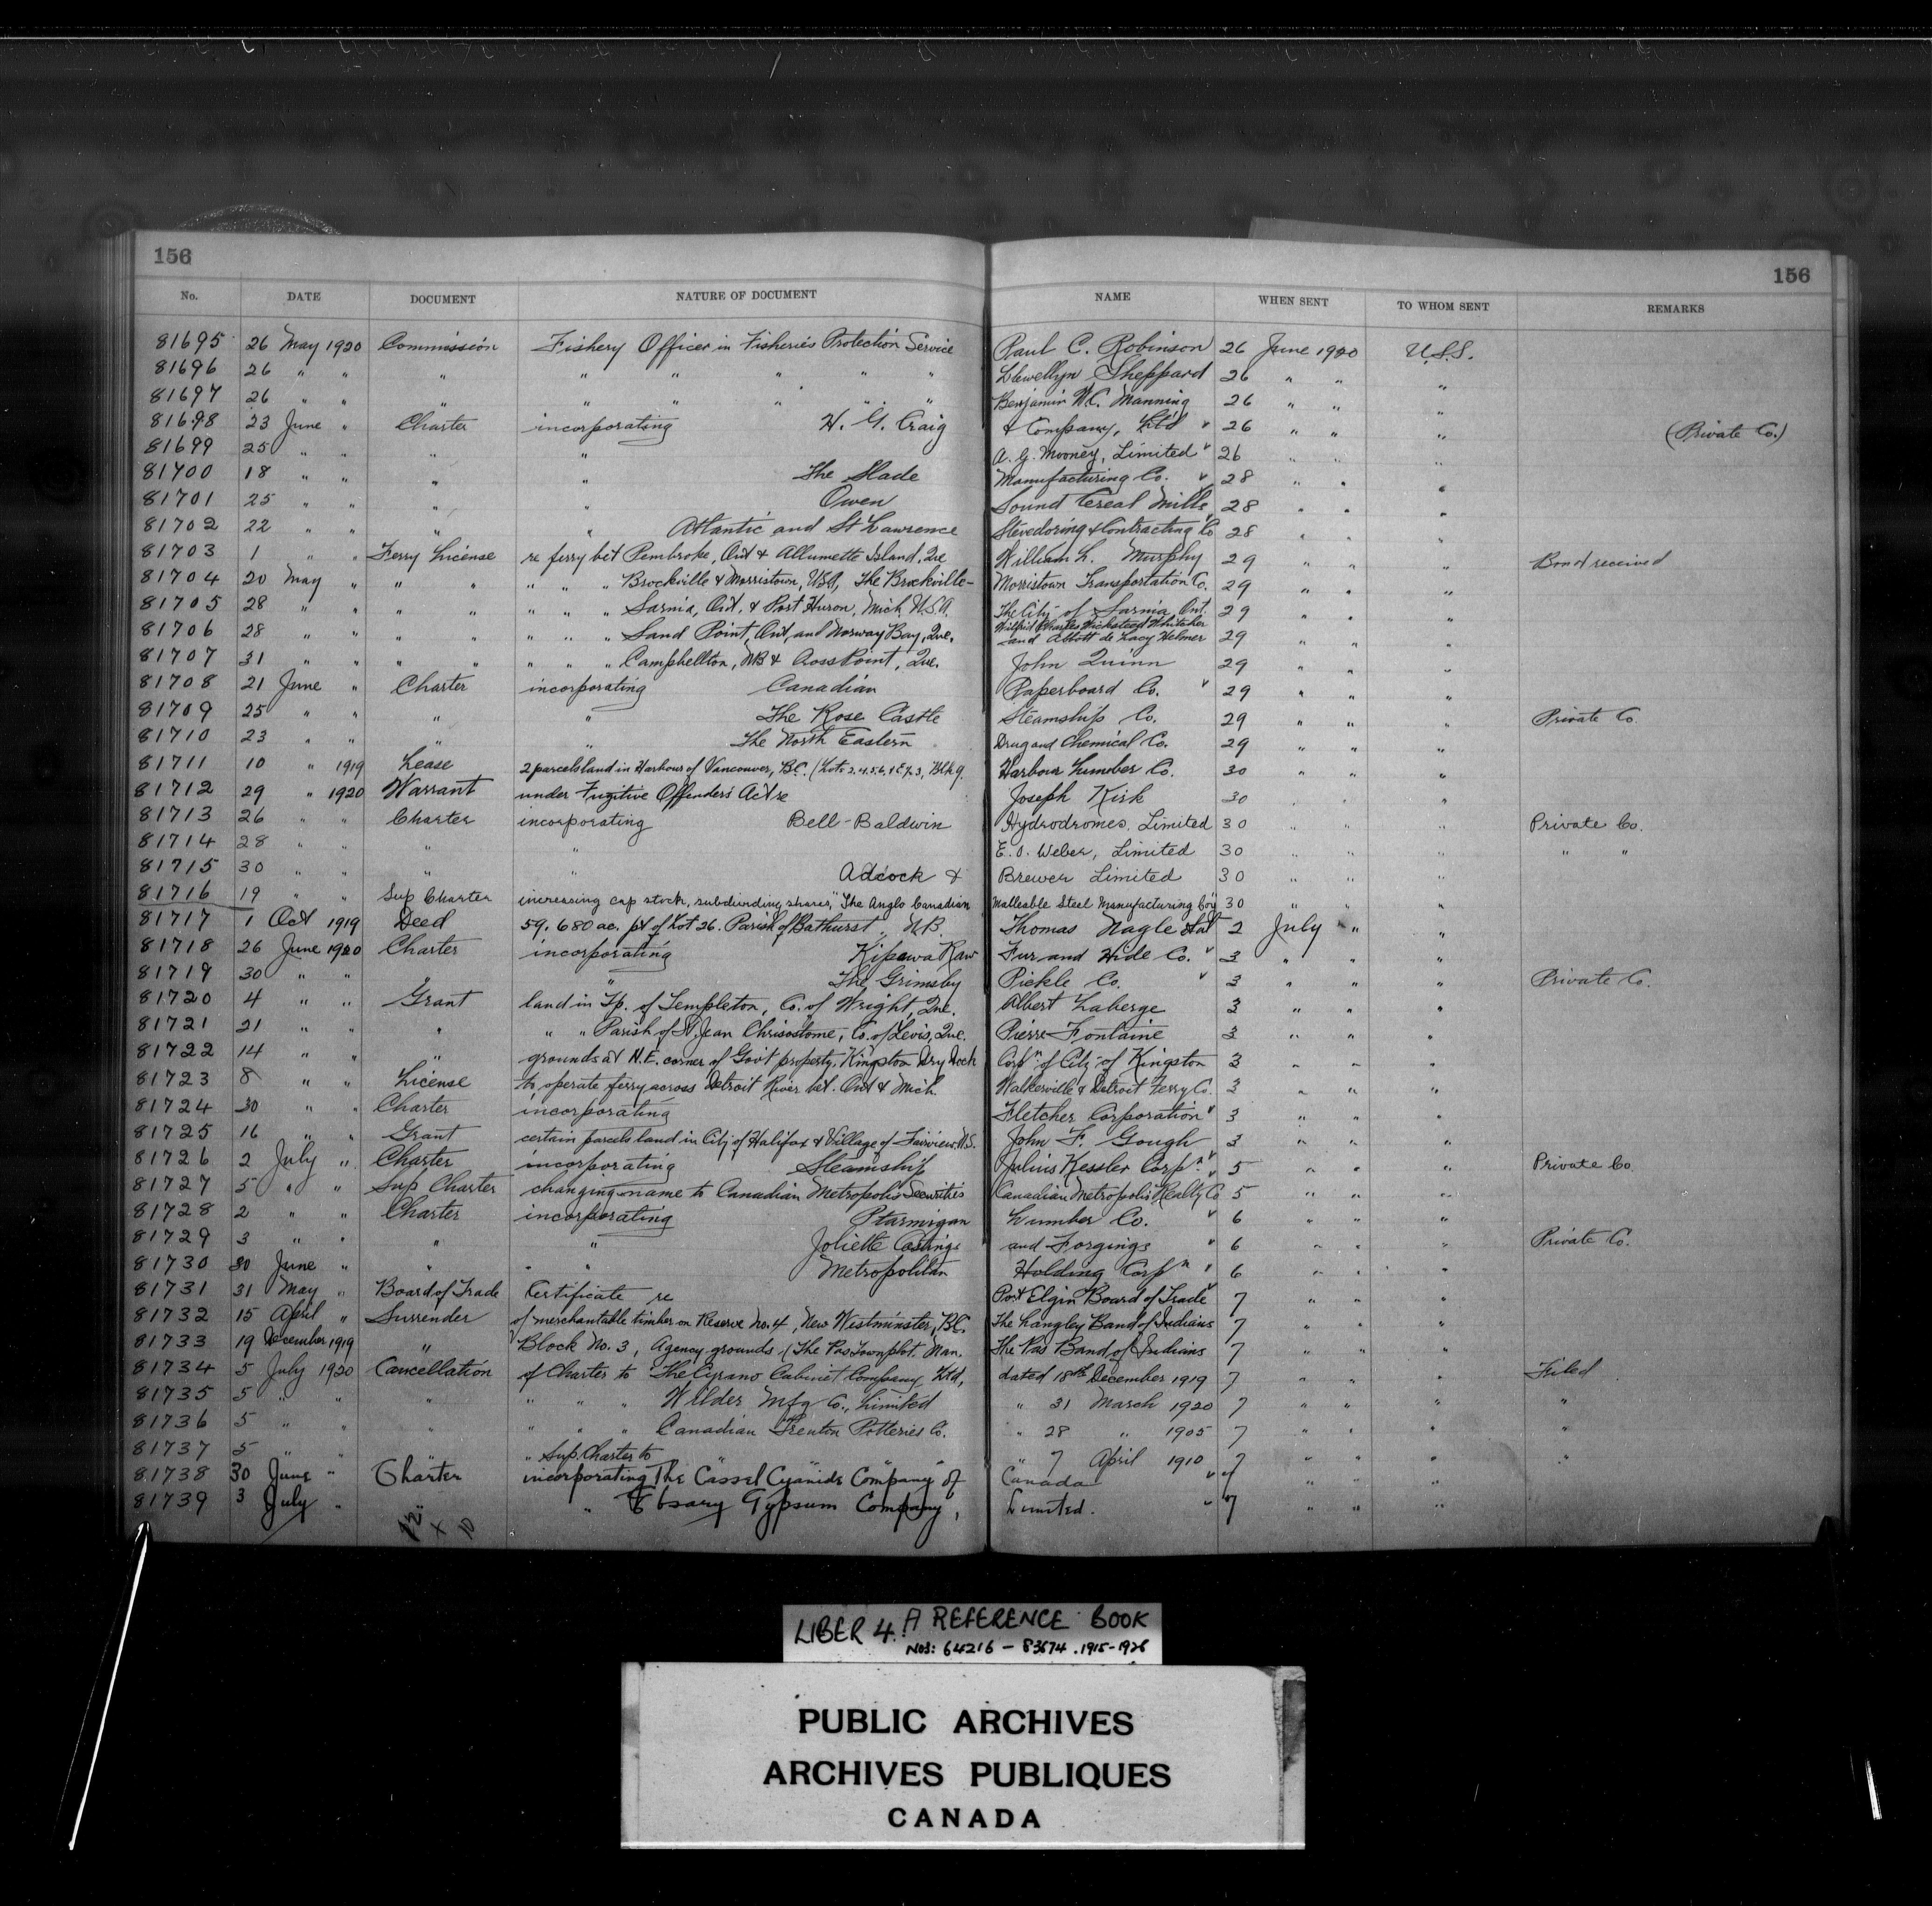 156
156
No. DATE DOCUMENT NATURE OF DOCUMENT NAME WHEN SENT TO WHOM SENT REMARKS
81695 26 May 1920 Commission Fishery Officer in Fisheries Protection Service Paul C. Robinson 26 June 1920 U.S.S.
81696 26 " " " " " " " " Llewellyn Sheppard 26 " " "
81697 26 " " " " " " " " Benjamin W.C. Manning 26 " " "
81698 23 June " Charter incorporating H. G. Craig & Company, Ltd 26 " " " (Private Co.)
81699 25 " " " " A. G. Mooney, Limited 26 " " "
81700 18 " " " " The Slade Manufacturing Co. 28 " " "
81701 25 " " " " Owen Sound Cereal Mills 28 " " "
81702 22 " " " " Atlantic and St Lawrence Stevedoring & Contracting Co 28 " " "
81703 1 " " Ferry License re ferry bet Pembroke, Ont & Allumette Island, Que William L. Murphy 29 " " " Bond received
81704 20 May " " " " " " Brockville & Morristown, USA, The Brockville- Morristown Transportation Co. 29 " " "
81705 28 " " " " " " " Sarnia, Ont. & Port Huron, Mich U.S.A. The City of Sarnia, Ont. 29 " " "
81706 28 " " " " " " " Sand Point, Ont, and Norway Bay, Que. Wilfrid Charles Wicksteed Whitaker and Abbott de Lacy Helmer 29 " " "
81707 31 " " " " " " " Campbellton, NB & Cross Point, Que. John Quinn 29 " " "
81708 21 June " Charter incorporating Canadian Paperboard Co. 29 " " "
81709 25 " " " " The Rose Castle Steamship Co. 29 " " " Private Co.
81710 23 " " " " The North Eastern Drug and Chemical Co. 29 " " "
81711 10 " 1919 Lease 2 parcels land in Harbour of Vancouver, B.C. Harbour Lumber Co. 30 " " "
81712 29 " 1920 Warrant under Fugitive Offenders Act re Joseph Kirk 30 " " "
81713 26 " " Charter incorporating Bell-Baldwin Hydrodromes, Limited 30 " " " Private Co.
81714 28 " " " " E. O. Weber, Limited 30 " " " " "
81715 30 " " " " Adcock & Brewer Limited 30 " " "
81716 19 " " Sup Charter increasing cap stock, subdividing shares, "The Anglo Canadian Malleable Steel Manufacturing Coy 30 " " "
81717 1 Oct 1919 Deed 59.680 ac. pt of Lot 26. Parish of Bathurst, N.B. Thomas Nagle 2 July " "
81718 26 June 1920 Charter incorporating Kipawa Raw Fur and Hide Co. 3 " " "
81719 30 " " " The Grimsby Pickle Co. 3 " " " Private Co.
81720 4 " " Grant land in Tp. of Templeton, Co. of Wright, Que. Albert Laberge 3 " " "
81721 21 " " " " " Parish of St. Jean Chrisostome, Co. of Levis, Que. Pierre Fontaine 3 " " "
81722 14 " " " grounds at N.E. corner of Gov't property, Kingston Dry Dock Corpn of City of Kingston 3 " " "
81723 8 " " License to operate ferry across Detroit River bet. Ont & Mich. Walkerville & Detroit Ferry Co. 3 " " "
81724 30 " " Charter incorporating Fletcher Corporation 3 " " "
81725 16 " " Grant certain parcels land in City of Halifax & Village of Fairview N.S. John F. Gough 3 " " "
81726 2 July " Charter incorporating Steamship Julius Kessler Corpn. 5 " " " Private Co
81727 5 " " Sup Charter changing name to Canadian Metropolis Securities Canadian Metropolis Realty Co 5 " " "
81728 2 " " Charter incorporating Ptarmigan Lumber Co. 6 " " "
81729 3 " " " " Joliette Castings and Forgings 6 " " " Private Co.
81730 30 June " " " Metropolitan Holding Corpn 6 " " "
81731 31 May " Board of Trade Certificate re Port Elgin Board of Trade 7 " " "
81732 15 April " Surrender of merchantable timber on Reserve No. 4, New Westminster, B.C. The Langley Band of Indians 7 " " "
81733 19 December 1919 " Block No. 3, Agency grounds (The Pas Townplot. Man. The Pas Band of Indians 7 " " "
81734 5 July 1920 Cancellation of Charter to The Cyrano Cabinet Company, Ltd, dated 18th December 1919 7 " " " Filed
81735 5 " " " " " " Wilder Mfg Co., Limited " 31 March 1920 7 " " " "
81736 5 " " " " " " Canadian Trenton Potteries Co. " 28 " 1905 7 " " " "
81737 5 " " " " Sup. Charter to " " " " 7 April 1910 7 " " " "
81738 30 June " Charter incorporating The Cassel Cyanide Company of Canada 7 " " "
81739 3 July " " " Ebsary Gypsum Company, Limited. 7 " " "
LIBER 4. A REFERENCE BOOK
NOS: 64216 - 83674. 1915-1926
PUBLIC ARCHIVES
ARCHIVES PUBLIQUES
CANADA